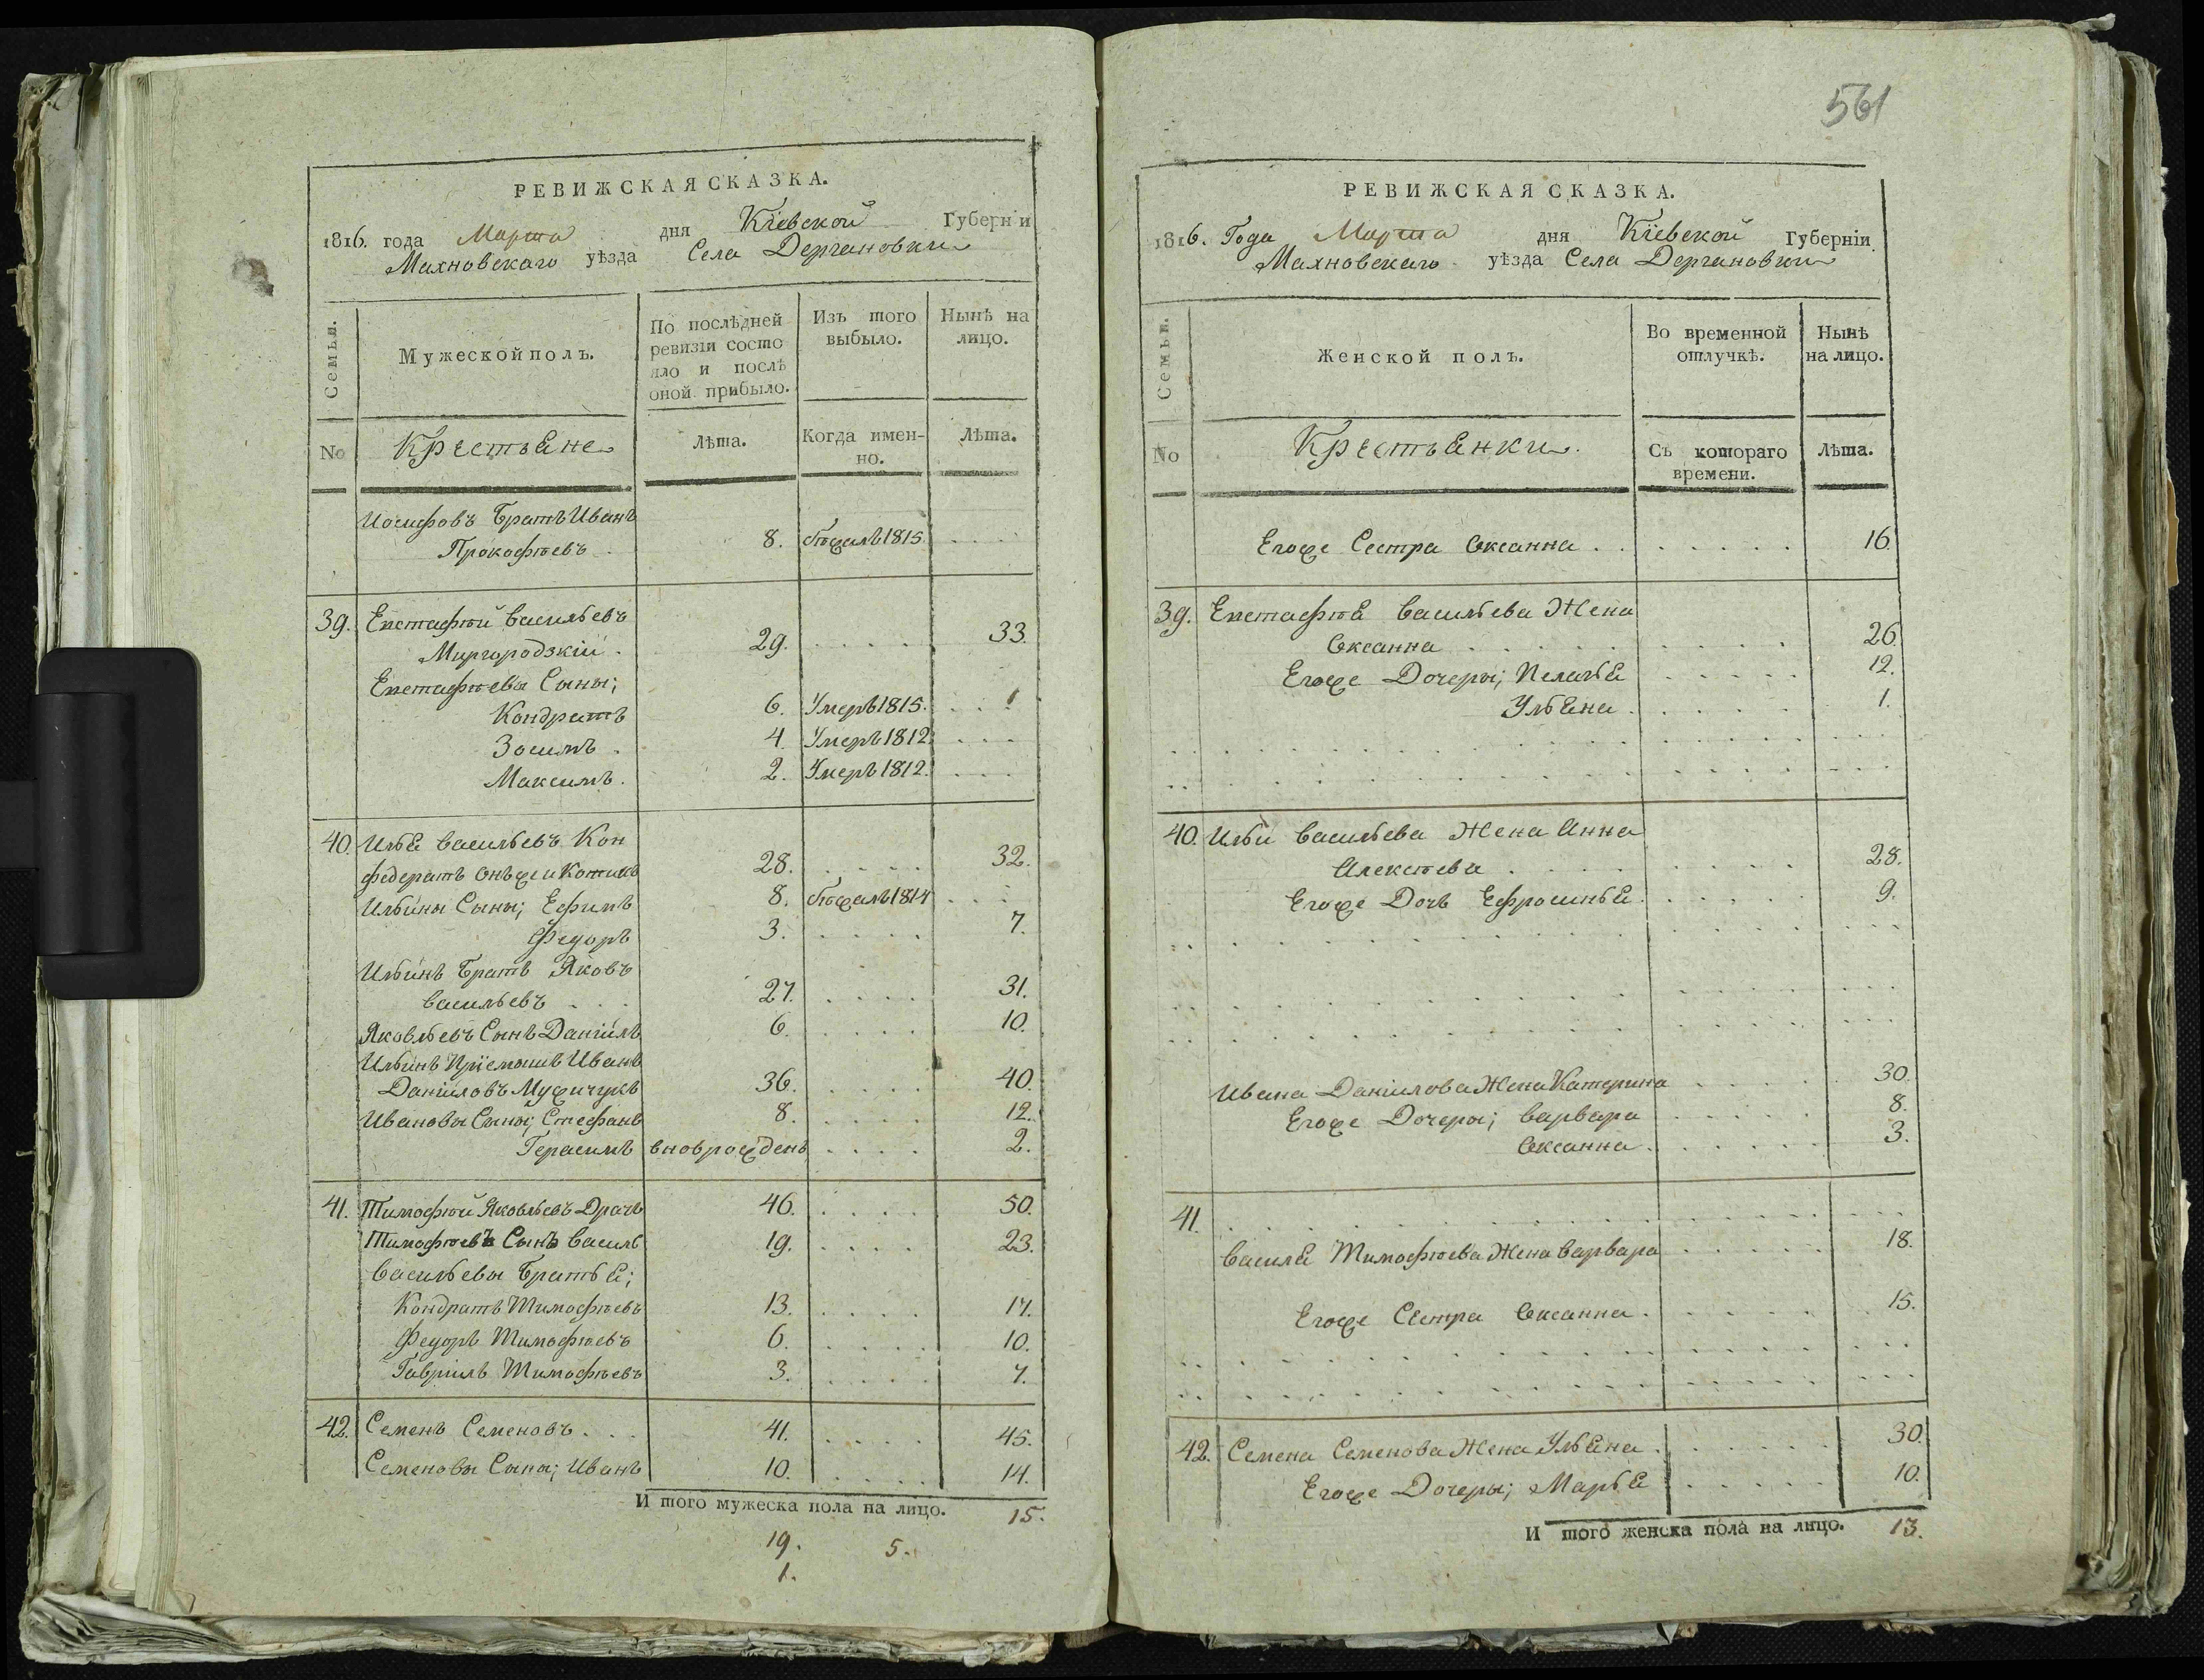 РЕВИЖСКАЯ СКАЗКА.
1816. года Марта дня Кіевской Губерніи
Махновскаго уѣзда Села Держановки
Семьи.
Мужеской полъ.
По послѣдней
ревизіи состо
яло и послѣ
оной прибыло.
Изъ того
выбыло.
Нынѣ на
лицо.
No
Крестьяне
Лѣта.
Когда имен-
но.
Лѣта.
Иосифовъ Братъ Иванъ
Прокофѣевъ . 8. бѣжалъ 1815. . . . .
39. Евстафѣй Васильевъ
Миргородзкій . 29. . . . . 33.
Евстафѣевы Сыны;
Кондратъ 6. Умеръ 1815. . . .
Зосимъ . 4. Умеръ 1812. . . .
Максимъ . 2. Умеръ 1812. . . .
40. Илья Васильевъ Кон
федератъ онъже и Котикъ 28. . . . . 32.
Ильины Сыны; Ефимъ 8. бѣжалъ 1814 . . .
Федоръ 3. . . . . 7.
Ильинъ Братъ Яковъ
Васильевъ . . . 27. . . . . 31.
Яковлевъ Сынъ Даніилъ 6. . . . . 10.
Ильинъ Пріемышъ Иванъ
Даніиловъ Мужичукъ 36. . . . . 40.
Ивановы Сыны; Стефанъ 8. . . . . 12.
Герасимъ вновърожденъ . . . . 2.
41. Тимофѣй Яковлевъ Драчъ 46. . . . . 50.
Тимофѣевъ Сынъ Василь 19. . . . . 23.
Васильевы Братья;
Кондратъ Тимофѣевъ 13. . . . . 17.
Федоръ Тимофѣевъ 6. . . . . 10.
Гавріилъ Тимофѣевъ 3. . . . . 7.
42. Семенъ Семеновъ . . . 41. . . . . 45.
Семеновы Сыны; Иванъ 10. . . . . 14.
И того мужеска пола на лицо. 15.
19. 5.
1.
561
РЕВИЖСКАЯ СКАЗКА.
1816. Года Марта дня Кіевской Губерніи.
Махновскаго уѣзда Села Держановки
Семьи.
Женской полъ.
Во временной
отлучкѣ.
Нынѣ
на лицо.
No
Крестьянки.
Съ котораго
времени.
Лѣта.
Егоже Сестра Оксанна . . . . . . . 16.
39. Евстафѣя Васильева Жена
Оксанна . . . . . . . 26.
Егоже Дочеры; Пелагья . . . . . 12.
Ульяна . . . . . . 1.
40. Ильи Васильева Жена Анна
Алексѣева . . . . . . . 28.
Егоже Дочь Ефросинья . . . . . . 9.
Ивана Даніилова Жена Катерина . . . . 30.
Егоже Дочеры; Варвара . . . . . 8.
Оксанна . . . . . . 3.
41. . . . . . .
Василя Тимофѣева Жена Варвара . . . . . 18.
Егоже Сестра Оксанна . . . . . . 15.
42. Семена Семенова Жена Ульяна . . . . . . 30.
Егоже Дочеры; Марья . . . . . 10.
И того женска пола на лицо. 13.